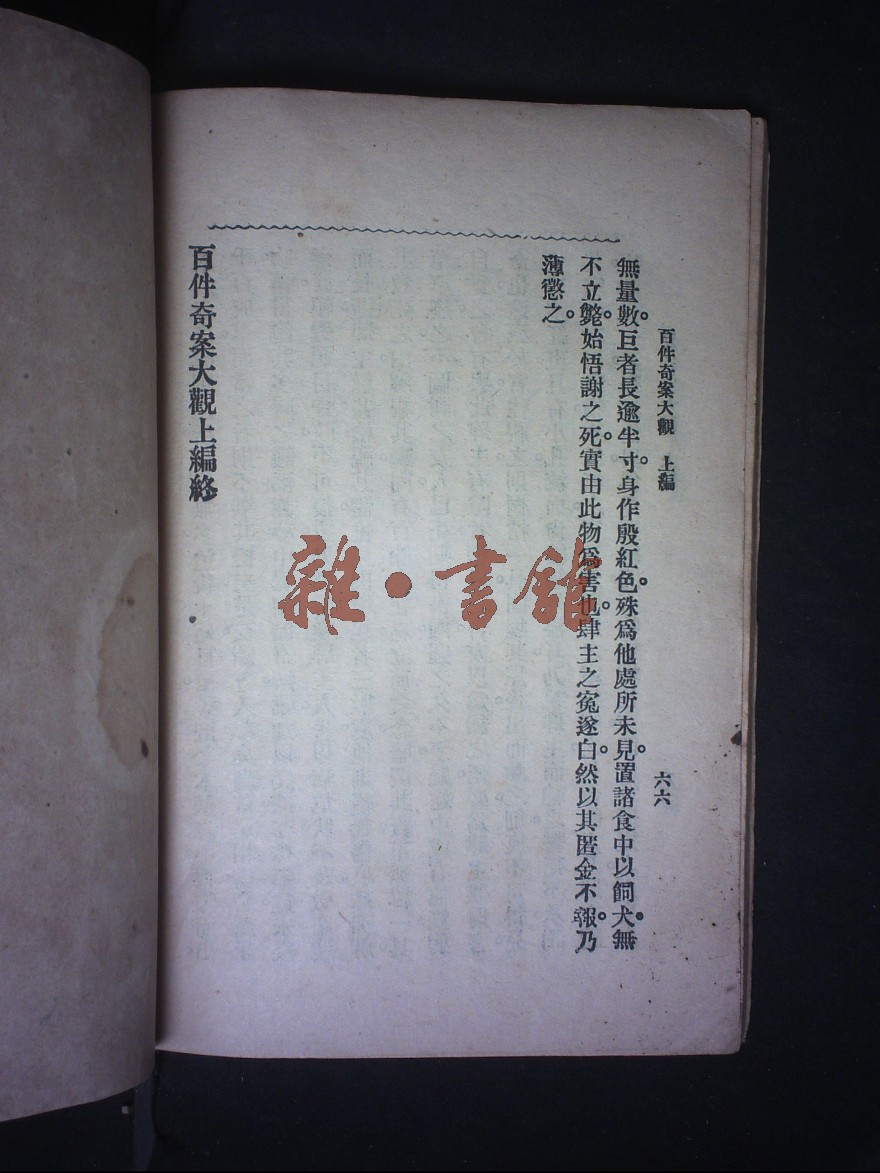 百件奇案大觀　上編
六六
無量數。巨者長逾半寸。身作殷紅色。殊爲他處所未見。置諸食中以飼犬。無
不立斃。始悟謝之死。實由此物爲害也。肆主之寃遂白。然以其匿金不報。乃
薄懲之。
百件奇案大觀上編終
雜·書館